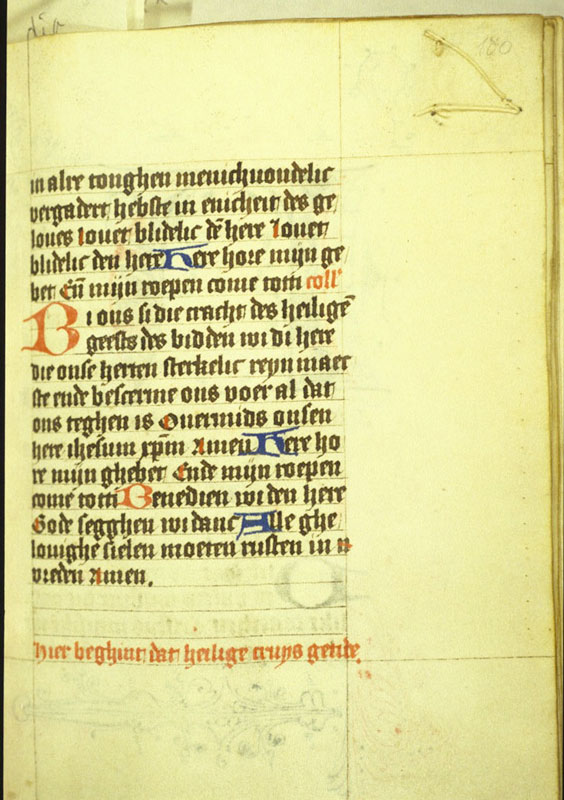 180
in alre tonghen menichuondelic
vergadert hebste in enicheit des ge
loues louet blidelic dē here louet
blidelic den herē Here hore mijn ge
bet Eñ mijn roepen come totti coll'
Bi ons si die cracht des heiligē
geests des bidden wi di here
die onse herten sterkelic reyn maec
ste ende bescerme ons voer al dat
ons teghen is Ouermids onsen
here ihesum xp̄m Amen Here ho
re mijn ghebet Ende mijn roepen
come totti Benedien wi den here
Gode segghen wi danc Alle ghe
louighe sielen moeten rusten in
vreden Amen.
Hier beghint dat heilige cruys getide.